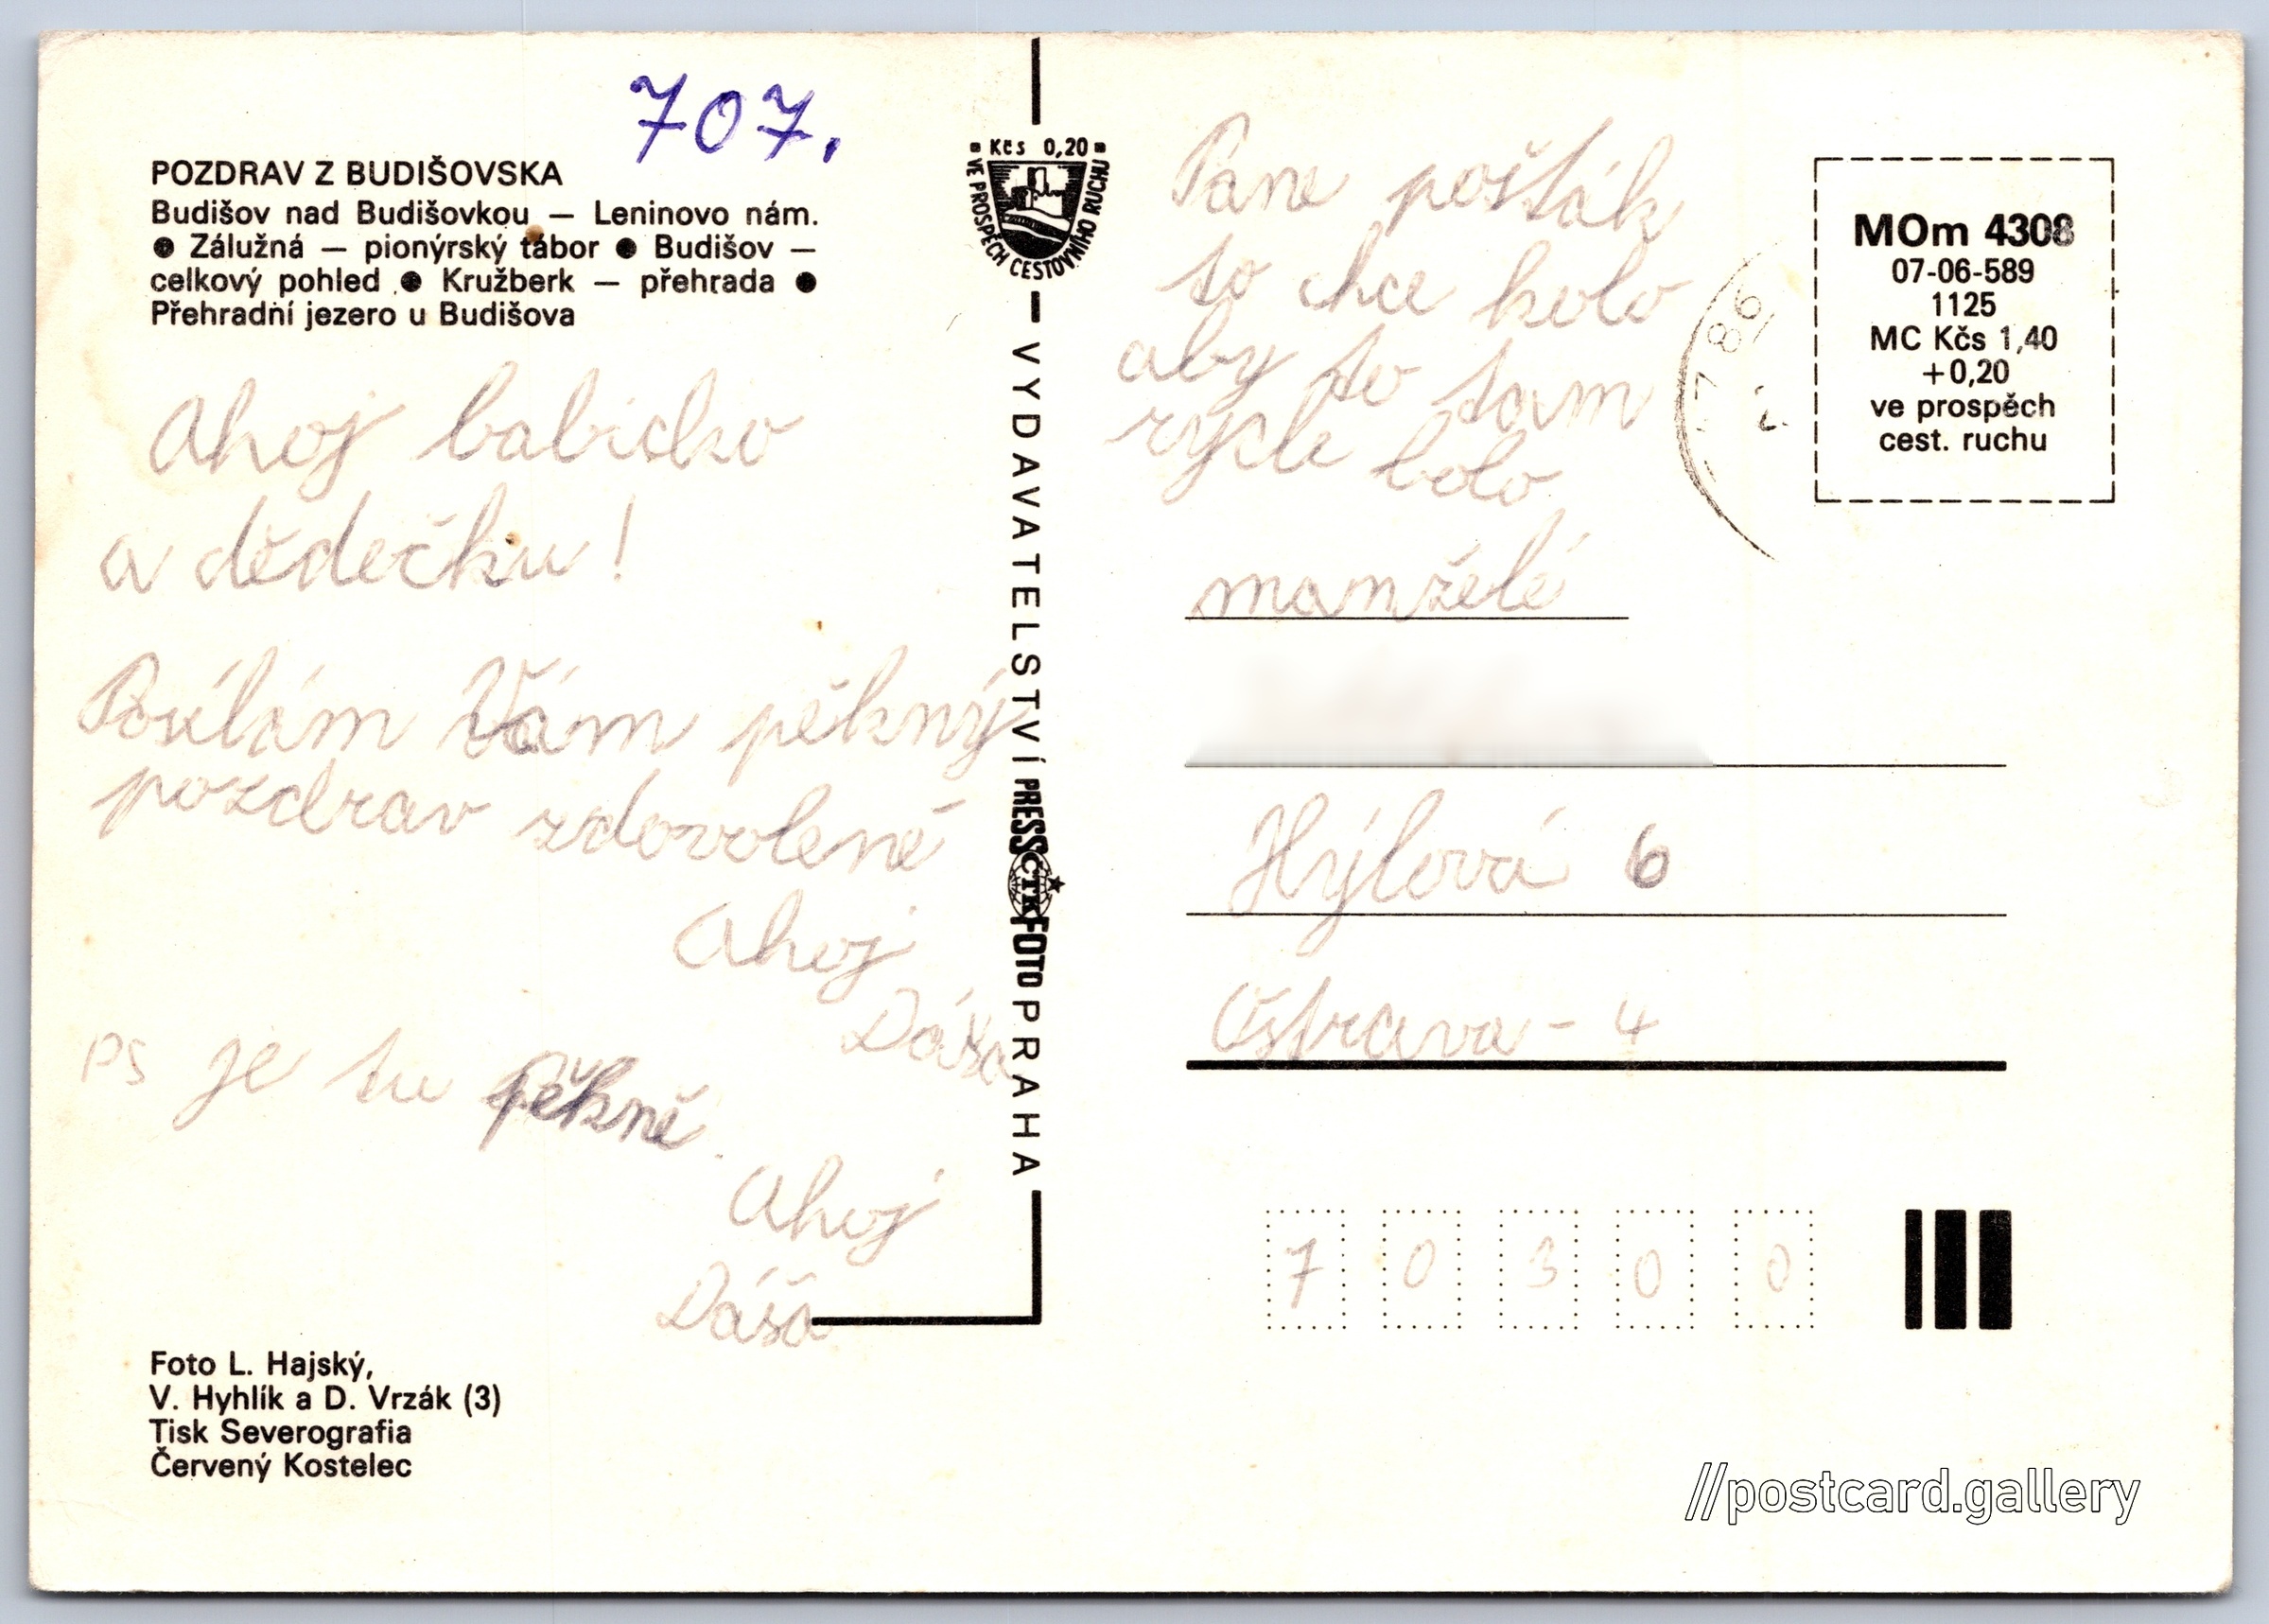 707.
POZDRAV Z BUDIŠOVSKA
Budišov nad Budišovkou — Leninovo nám.
● Zálužná — pionýrský tábor ● Budišov —
celkový pohled ● Kružberk — přehrada ●
Přehradní jezero u Budišova
Ahoj babicko
a dědečku!
Posílám Vám pěkný
pozdrav zdovolené
Ahoj
Dáša
PS je tu pěkně.
Ahoj
Dáša
Foto L. Hajský,
V. Hyhlík a D. Vrzák (3)
Tisk Severografia
Červený Kostelec
Kčs 0,20
VE PROSPĚCH CESTOVNÍHO RUCHU
VYDAVATELSTVÍ PRESSFOTO PRAHA
ČTK
Pane pošťák
to chce kolo
aby to tam
rycle bolo
manželé
Hýlová 6
Ostrava - 4
70300
MOm 4308
07-06-589
1125
MC Kčs 1,40
+0,20
ve prospěch
cest. ruchu
//postcard.gallery